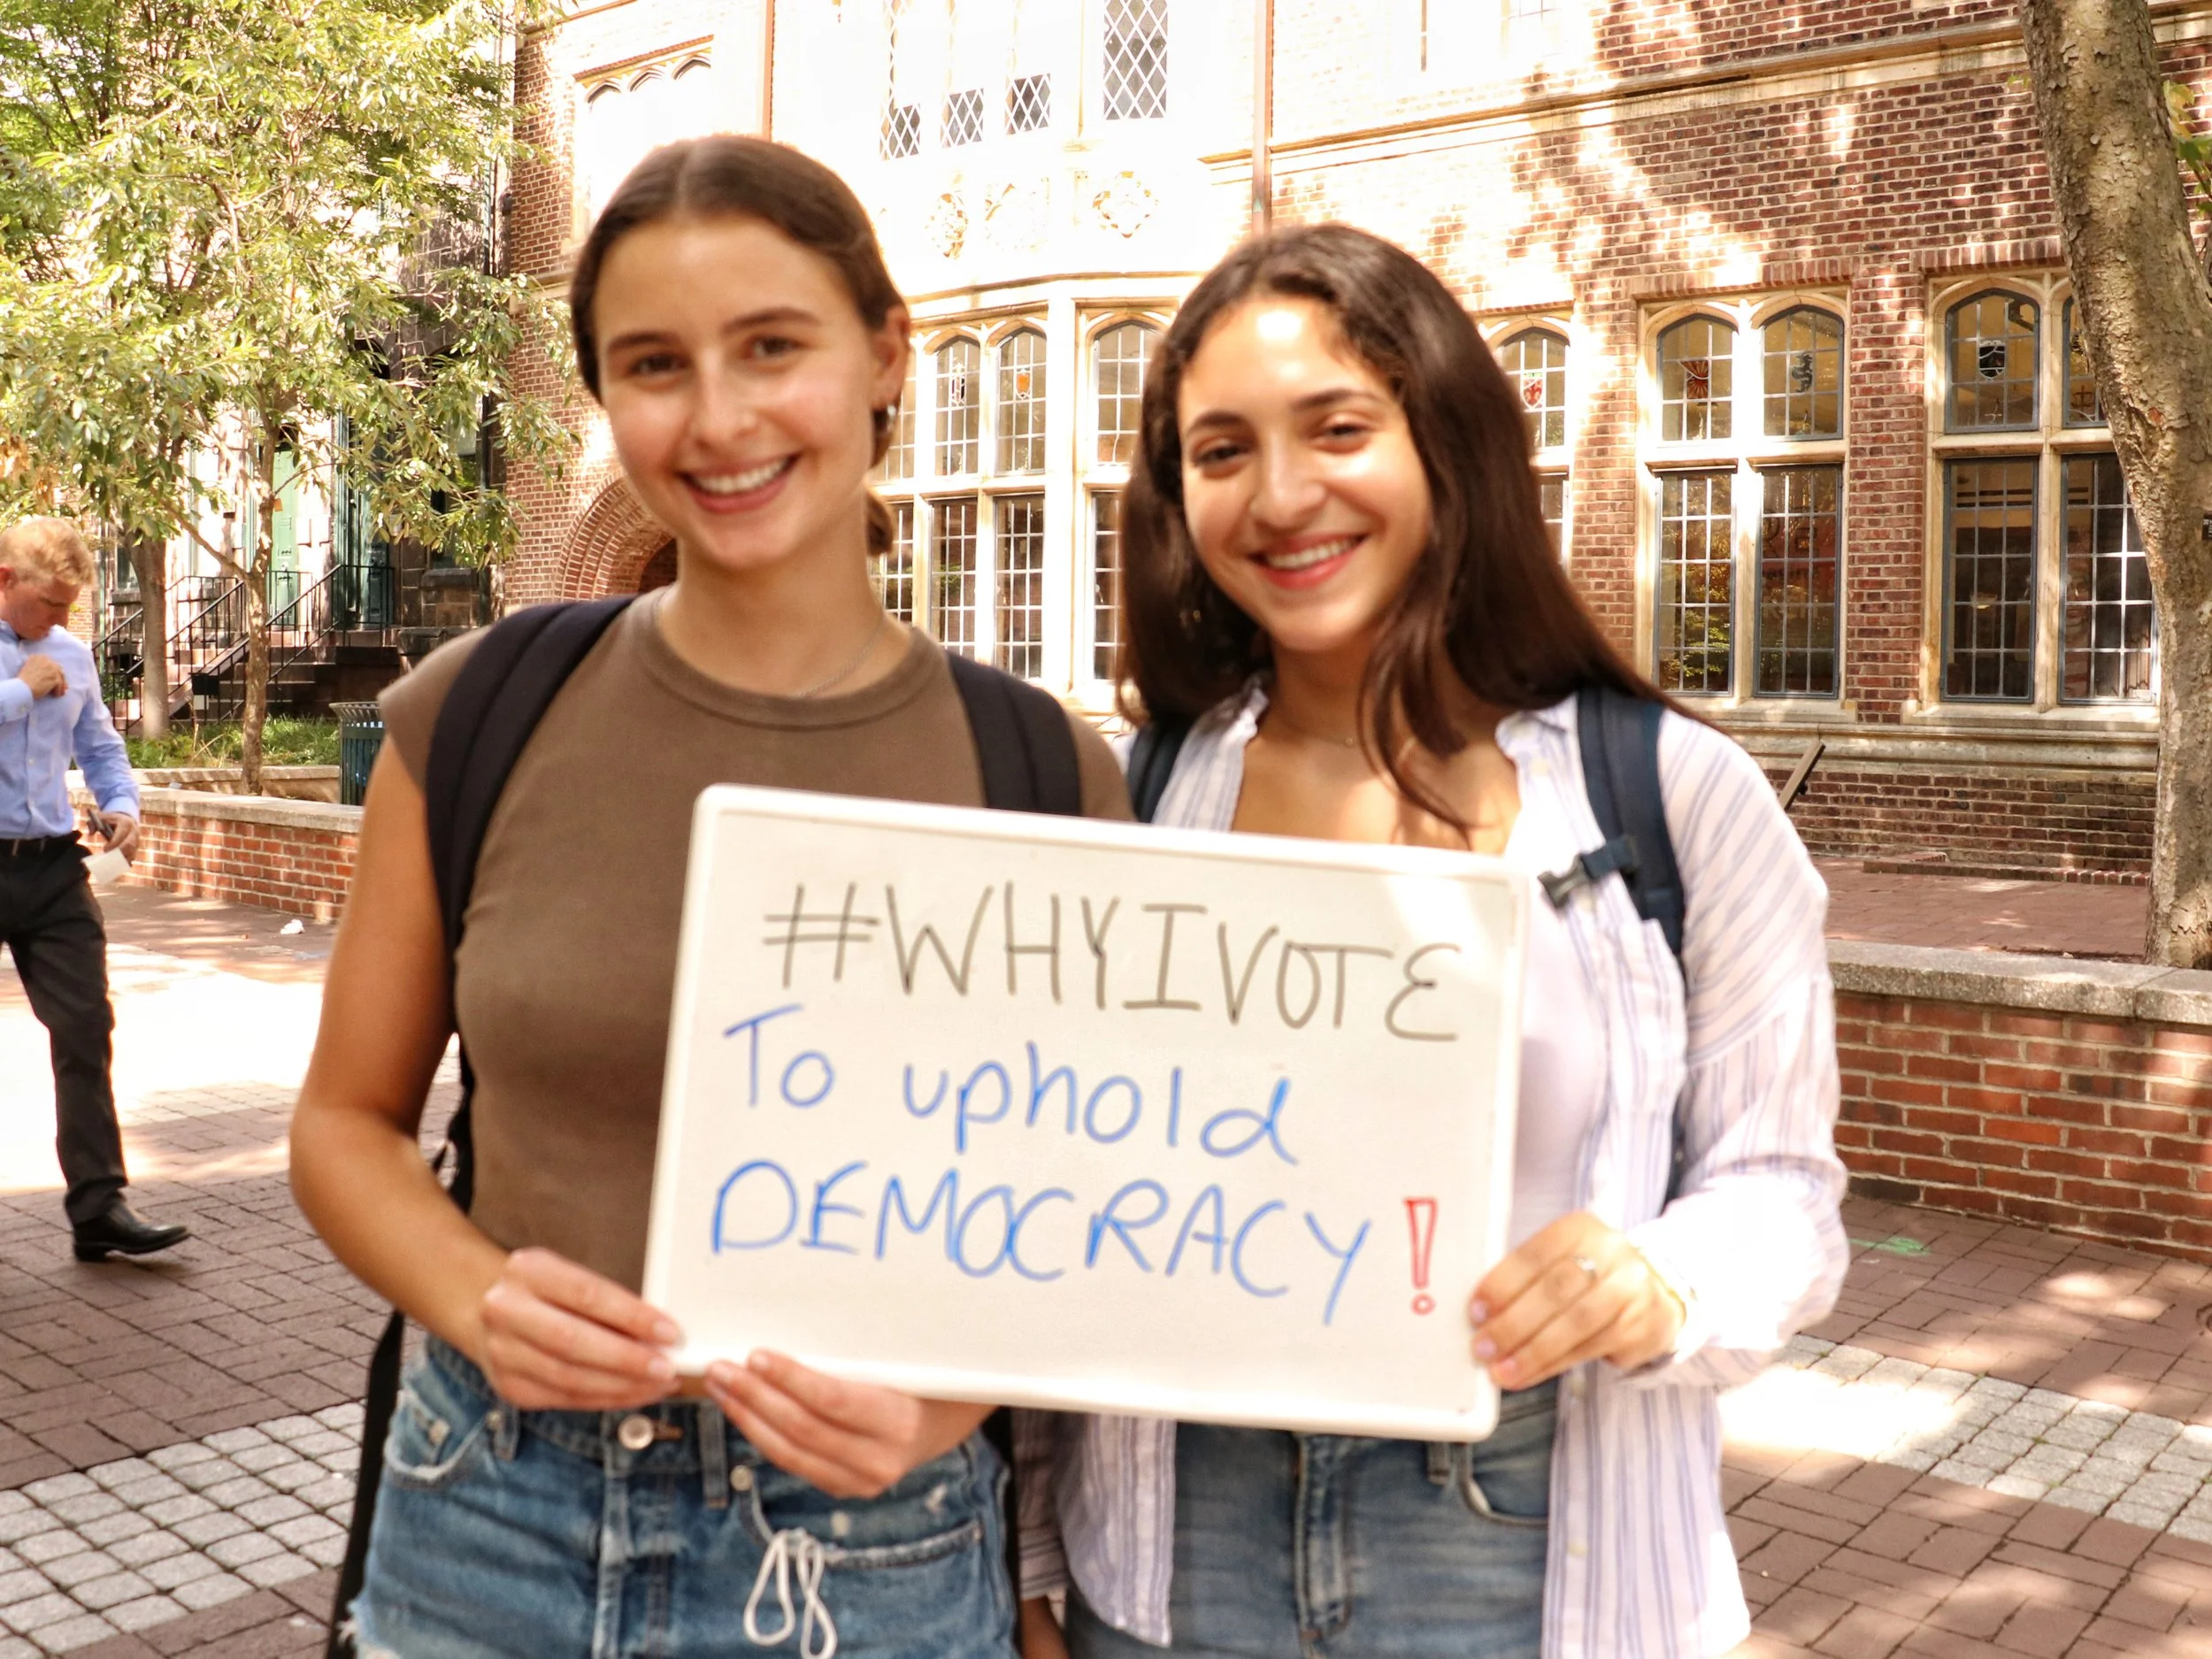 #WHYIVOTE
To uphold
DEMOCRACY!